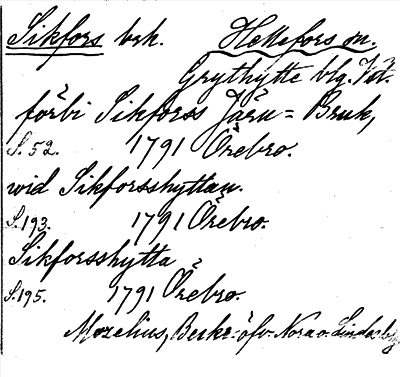 Sikfors brk. Hellefors sn.
Grythytte blg. Vst.
förbi Sikforss Järn= Bruk,
S. 52. 1791 Örebro.
wid Sikforsshyttan.
S. 193. 1791 Örebro.
Sikforsshytta
S. 195. 1791 Örebro.
Mozelius, Beskr. öfv. Nora o. Lindesbg.